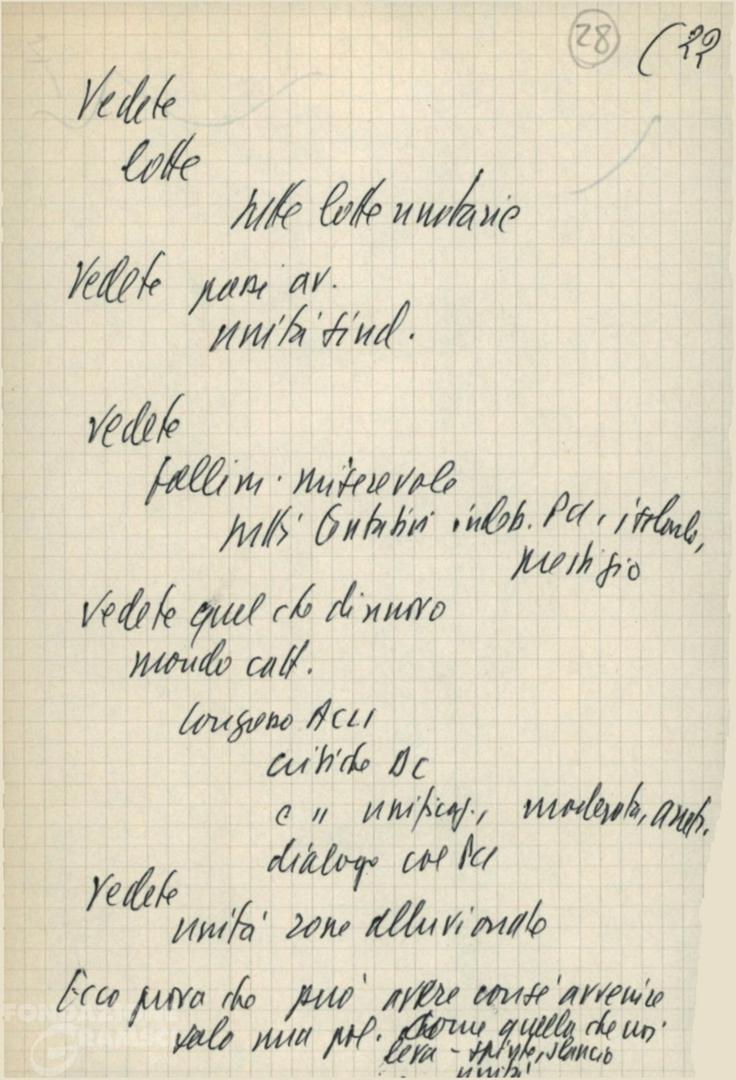 28 (22
Vedete
lotte
tutte lotte unitarie
Vedete passi av.
unità sind.
Vedete
fallim. miserevole
tutti tentativi indeb. PCI, isolarlo,
prestigio
Vedete quel che di nuovo
mondo catt.
Congresso ACLI
critiche DC
e " unificaz., moderata,
dialogo col PCI
Vedete
unità zone alluvionate
Ecco prova che può avere con sé avvenire
solo una pol. come quella che noi
leva - spinte, slancio
unità